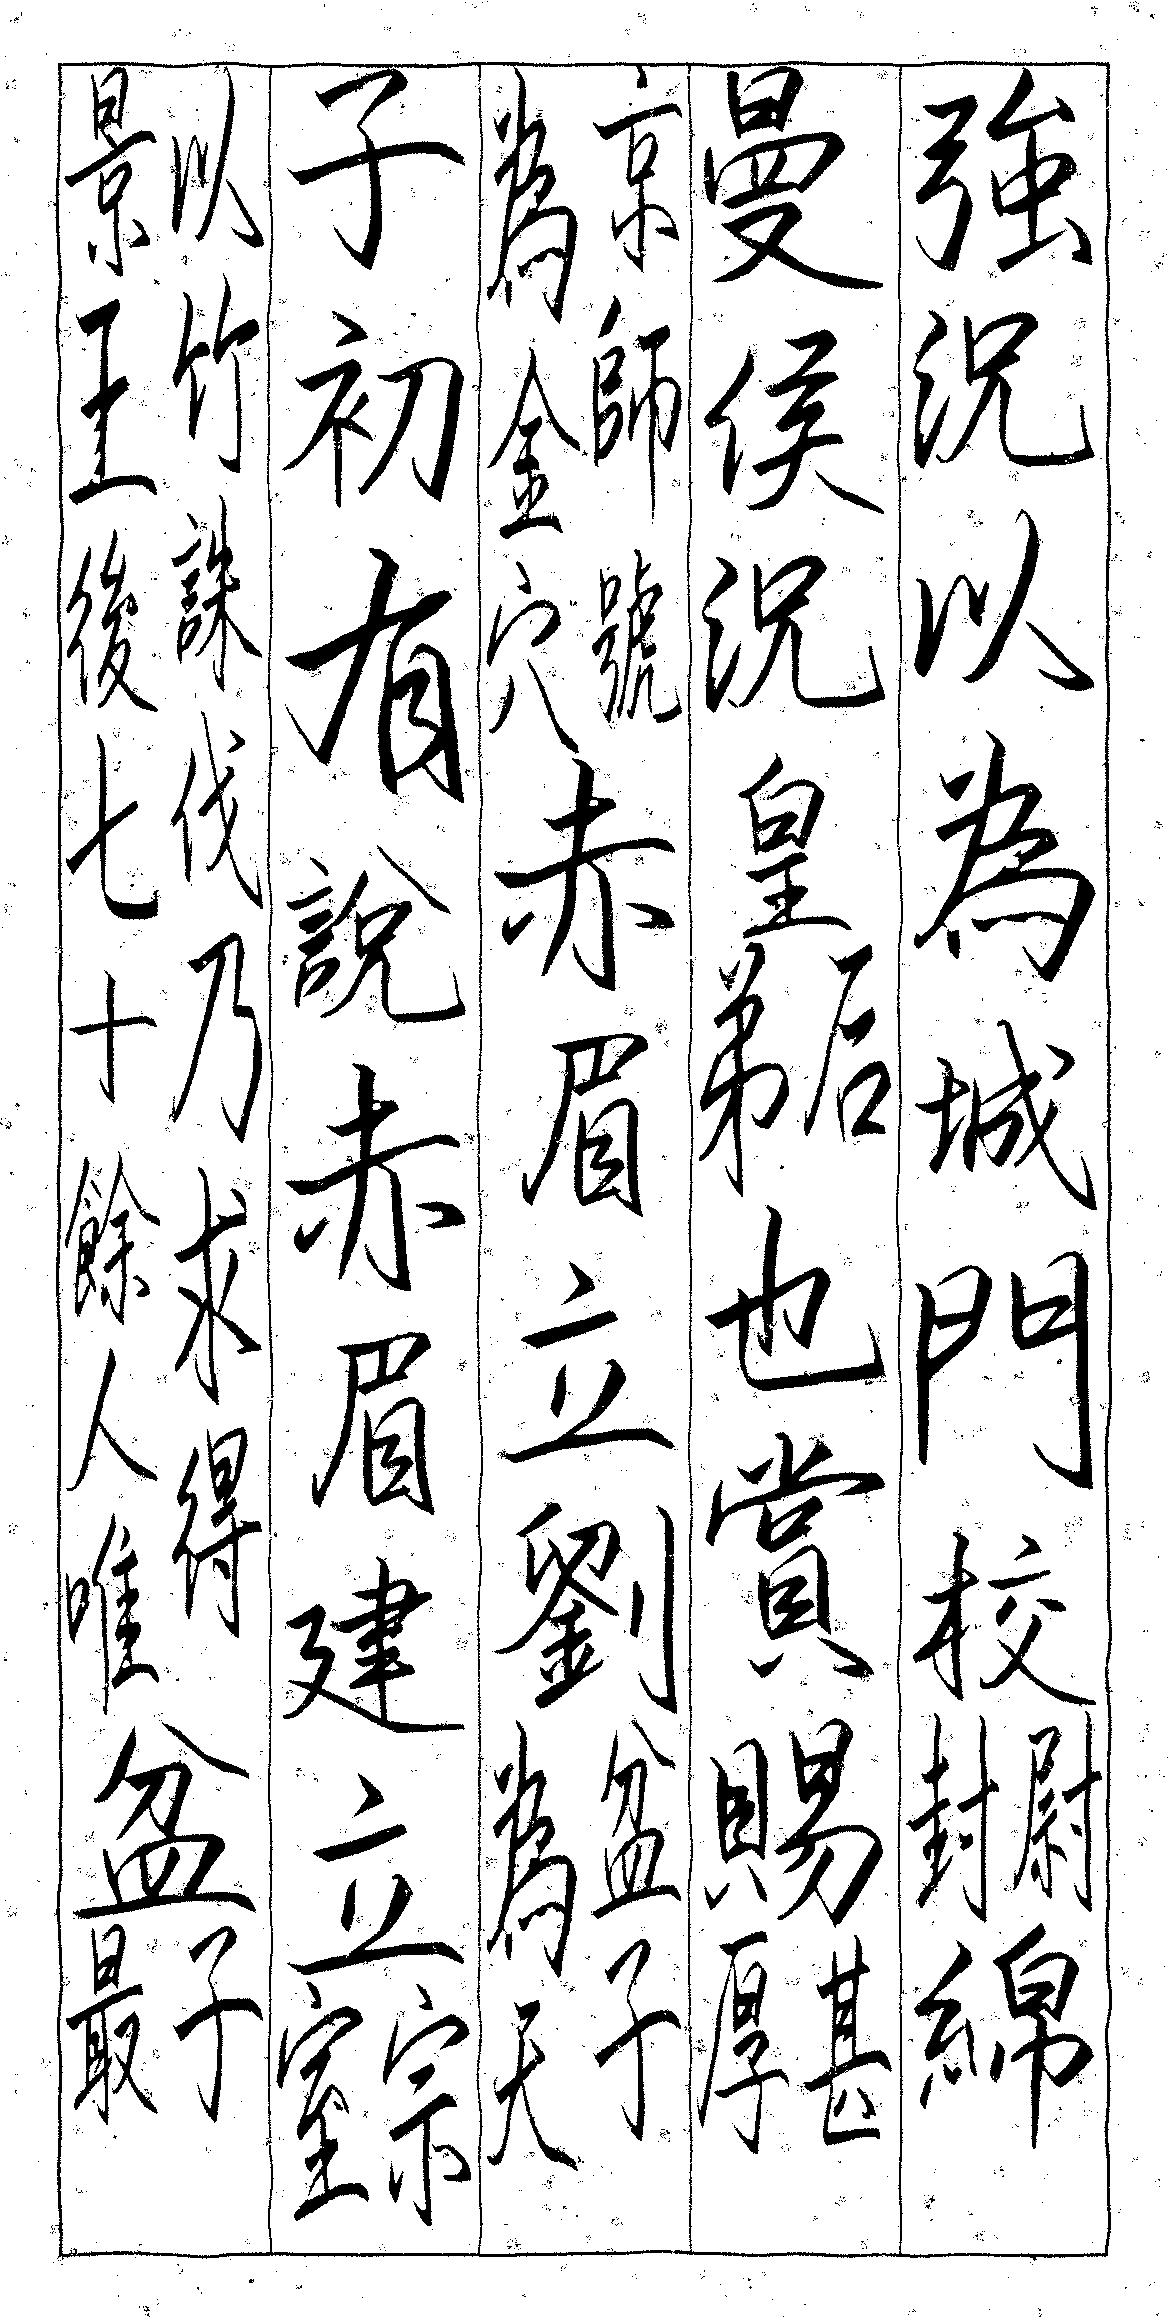 強況以為城門校尉封綿
曼侯況皇后弟也賞賜甚厚
京師號為金穴赤眉立劉盆子為天
子初有說赤眉建立宗室
以竹誅伐乃求得景王後七十餘人唯盆子最